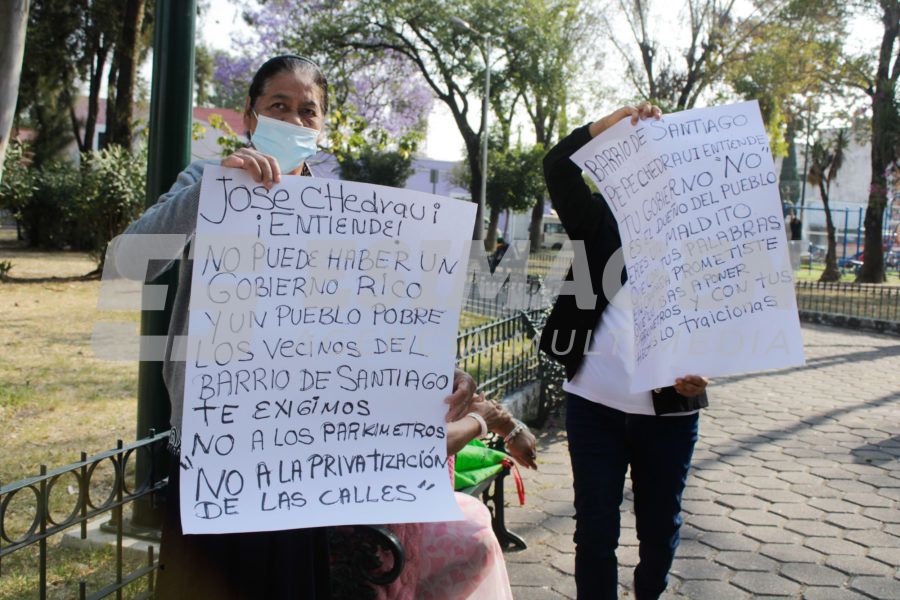 JOSE CHEDRAUI
¡ENTIENDE!
NO PUEDE HABER UN
GOBIERNO RICO
Y UN PUEBLO POBRE
LOS VECINOS DEL
BARRIO DE SANTIAGO
TE EXIGIMOS
NO A LOS PARKIMETROS
"NO A LA PRIVATIZACIÓN
DE LAS CALLES"
BARRIO DE SANTIAGO
PEPE CHEDRAUI ENTIENDE
TU GOBIERNO "NO"
ES EL DUEÑO DEL PUEBLO
MALDITO
TUS PALABRAS
PROMETISTE
A PONER
Y CON TUS
LO traicionas